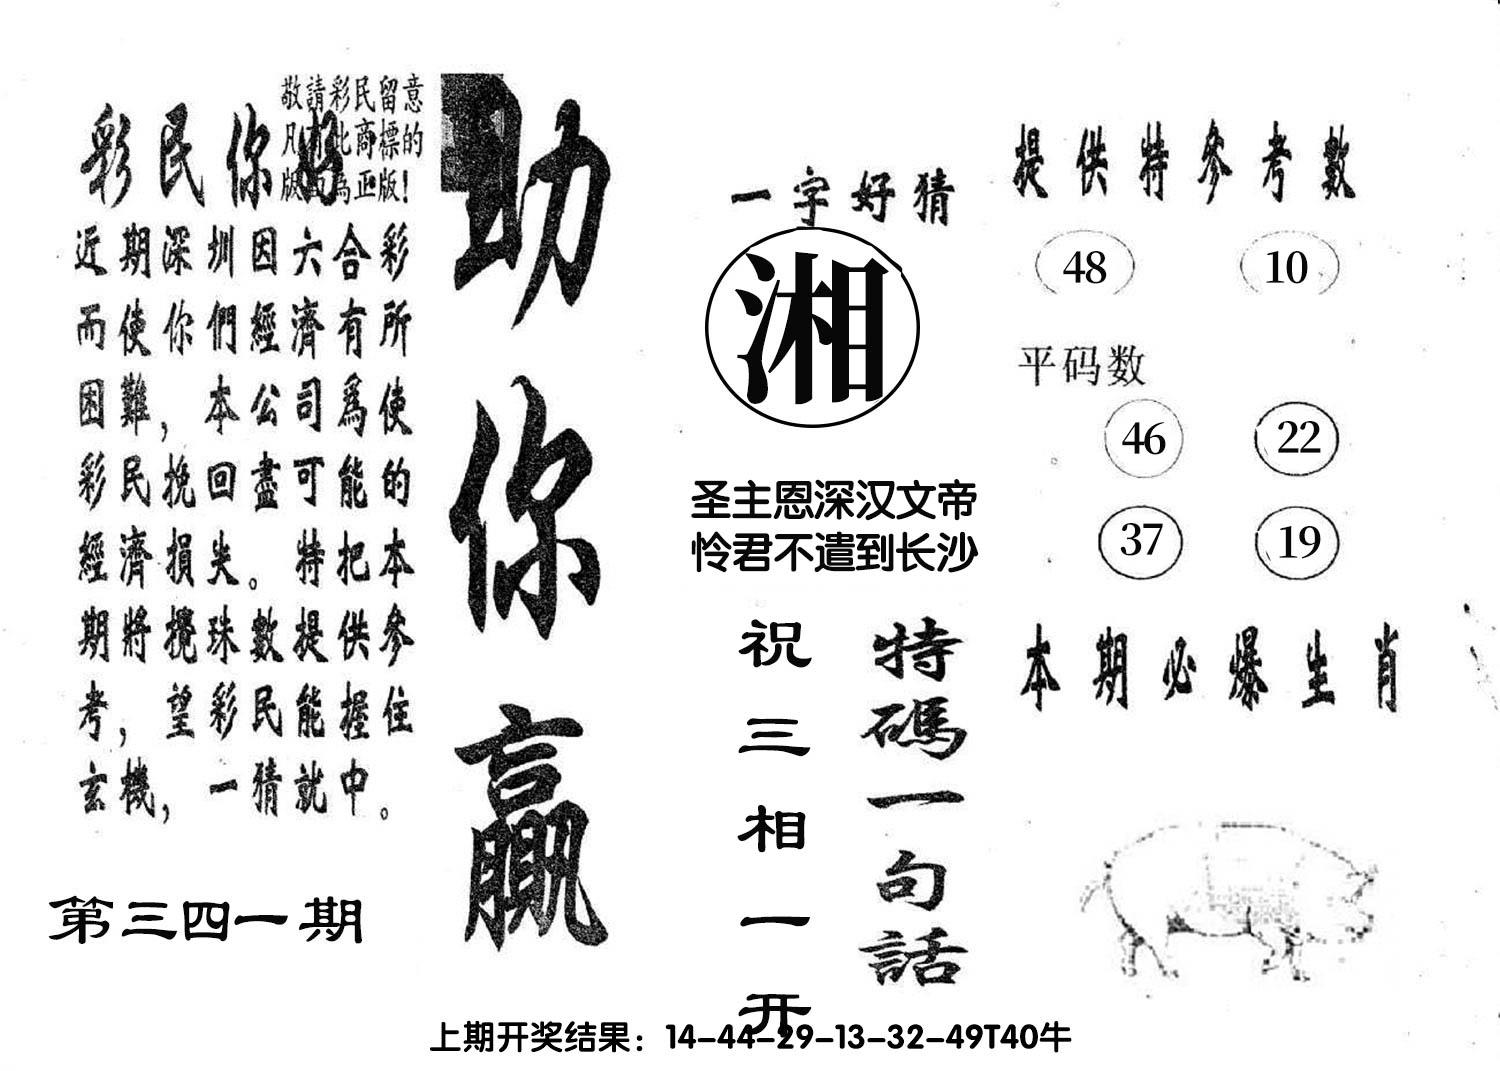 敬請彩民留意
凡有此商標的
版面為正版！
彩民你好
近期深圳因六合彩
而使你們經濟有所
困難，本公司爲使
彩民挽回盡可能的
經濟損失。特把本
期將攪珠數提供參
考，望彩民能握住
玄機，一猜就中。
第三四一期
助你贏
一字好猜
湘
圣主恩深汉文帝
怜君不遣到长沙
特碼一句話
祝三相一开
提供特參考數
48 10
平码数
46 22
37 19
本期必爆生肖
上期开奖结果：14-44-29-13-32-49T40牛